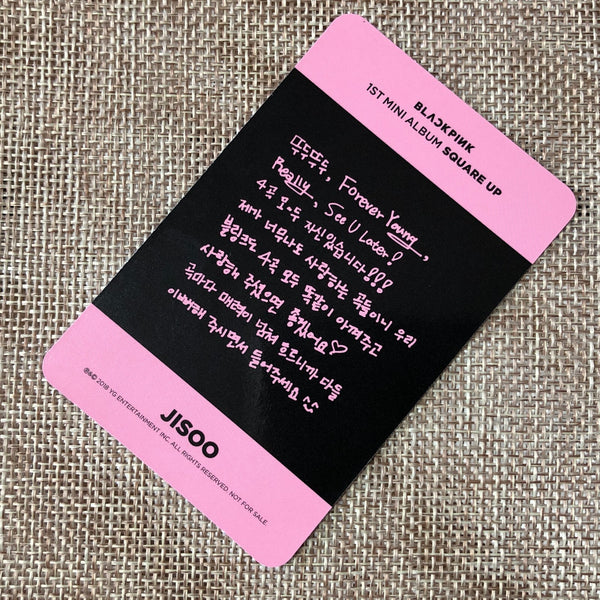 BLACKPINK
1ST MINI ALBUM SQUARE UP
뚜두뚜두, Forever Young,
Really, See U Later!
4곡 모두 자신있습니다!!!
제가 너무나도 사랑하는 곡들이니 우리
블링크도 4곡 모두 똑같이 아껴주고
사랑해 주셨으면 좋겠어요♡
곡마다 매력이 넘쳐 흐르니까 다들
이뻐해 주시면서 들어주세요 :)
JISOO
℗&© 2018 YG ENTERTAINMENT INC. ALL RIGHTS RESERVED. NOT FOR SALE.